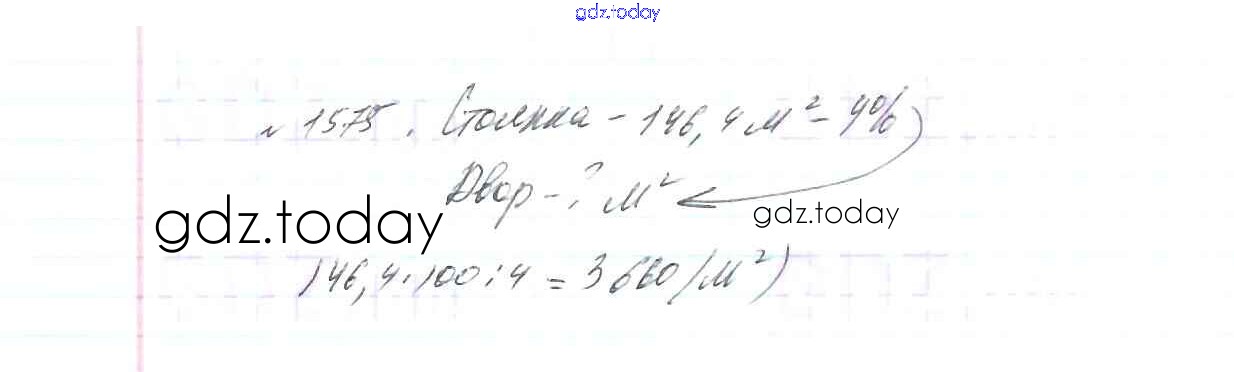 gdz.today
№ 1575. Стоянка – 146,4 м² – 4%
Двор – ? м²
gdz.today
gdz.today
146,4 · 100 : 4 = 3660 (м²)